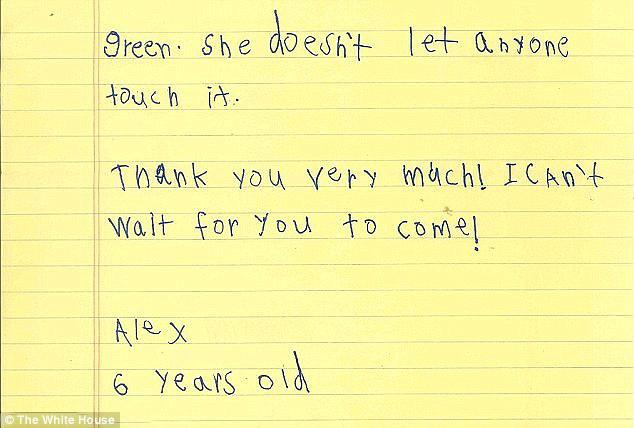 green. she doesn't let anyone
touch it.
Thank you very much! I CAn't
wait for you to come!
Alex
6 years old
© The White House